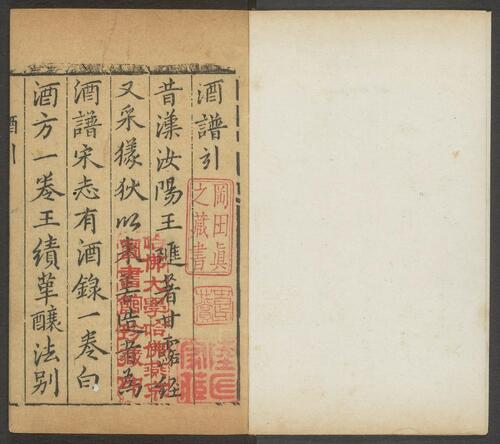 酒譜引
昔漢汝陽王璡著甘露經
又采儀狄以來善造者爲
酒譜宋志有酒錄一卷白
酒方一卷王績草釀法別
酒引
岡田眞
之藏書
哈佛大學哈佛燕京
圖書館珍藏印